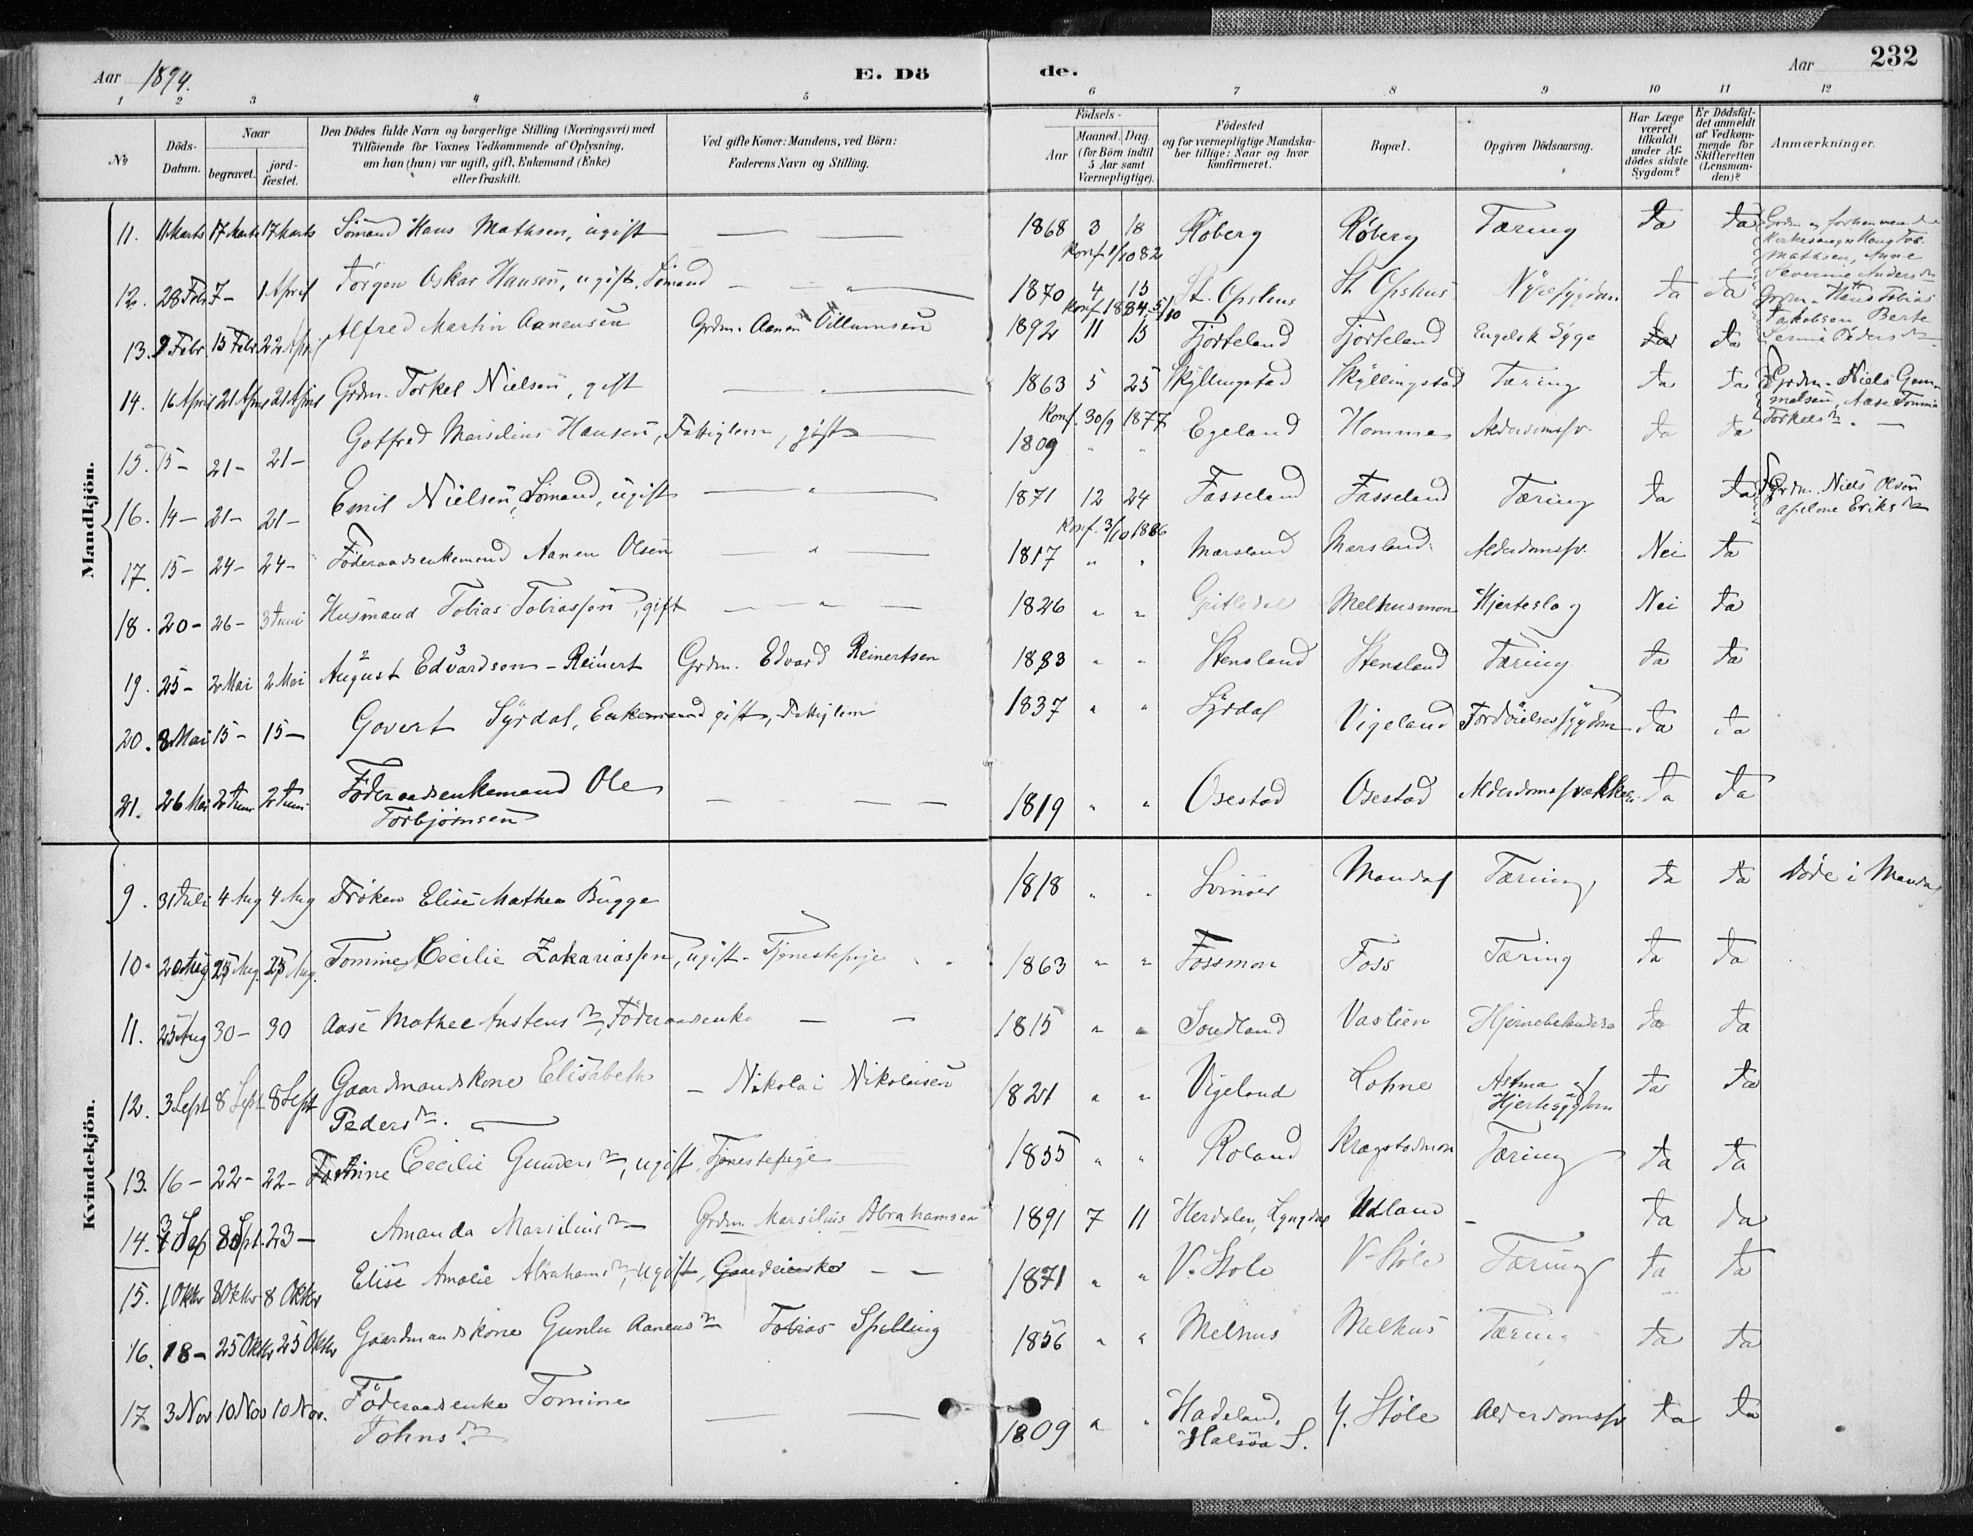 Aar 1894.
E. Dö
de.
Aar
232
1 2 3 4 5 6 7 8 9 10 11 12
№
Döds-Datum.
Naar
begravet.
jordfæstet.
Den Dödes fulde Navn og borgerlige Stilling (Næringsvei) med
Tilföiende for Voxnes Vedkommende af Oplysning,
om han (hun) var ugift, gift, Enkemand (Enke)
eller fraskilt.
Ved gifte Koner: Mandens, ved Börn:
Faderens Navn og Stilling.
Födsels-
Aar
Maaned. Dag.
(for Börn indtil
5 Aar samt
Værnepligtige).
Födested
og for værnepligtige Mandskaber tillige: Naar og hvor
konfirmeret.
Bopæl.
Opgiven Dödsaarsag.
Har Læge
været
tilkaldt
under Afdödes sidste
Sygdom?
Er Dödsfaldet anmeldt
af Vedkommende for
Skifteretten
(Lensmanden)?
Anmærkninger.
Mandkjön.
11. 11 Marts 17 Marts 17 Marts Sömand Hans Mathsen, ugift — — 1868 3 18 Röberg Röberg Tæring Ja Ja
Konf 1/10 82
Grdm og forhenværende Kirkesanger Hans Tob. Mathsen, Anne Severine Andersdtr
12. 28 Febr 7 - 1 April Jörgen Oskar Hansen, ugift, Sömand — " — 1870 4 13 St. Opshus St. Opshus Nyresygdom Ja Ja
Konf 1884 5/10
Grdm. Hans Tobias Jakobsen Berte Serine Pedersdtr
13. 9 Febr 15 Febr 22 April Alfred Martin Aanensen Grdm. Aanen Villumsen 1892 11 13 Fjorteland Fjorteland Engelsk Syge Ja Ja
14. 16 April 21 April 21 April Grdm. Torkel Nielsen, gift — " — 1863 5 25 Skyllingstad Skyllingstad Tæring Ja Ja
Konf. 30/9 1877
Grdm. Niels Gunmelsen, Aase Tomine Torkelsdtr. —
15. 15 - 21 - 21 - Gotfred Marselius Hansen, Fattiglem, gift — 1809 " " Egeland Homme Alderdomssv. Ja Ja
16. 14 - 21 - 21 - Emil Nielsen, Sömand, ugift — " — 1871 12 24 Fasseland Fasseland Tæring Ja Ja
Konf. 3/10 1886
Grdm. Niels Olsen Apelone Eriksdtr
17. 15 - 24 - 24 - Föderaadsenkemand Aanen Olsen — " — 1817 " " Marsland Marsland Alderdomssv. Nei Ja
18. 20 - 26 - 3 Juni Husmand Tobias Tobiassen, gift — " — 1826 " " Melhusmon Hjerteslag Nei Ja
19. 25 - 2 Mai 2 Mai August Edvardsen - Reinert Grdm. Edvard Reinertsen 1883 " " Stensland Stensland Tæring Ja Ja
20. 8 Mai 15 - 15 - Govert Syrdal, Enkemand gift, Fattiglem 1837 " " Syrdal Vigeland Fordöielsessygdom Ja Ja
21. 26 Mai 2 Juni 2 Juni Föderaadsenkemand Ole
Torbjörnsen — — 1819 " " Osestad Osestad Alderdomssvækkelse Ja Ja
Kvindekjön.
9. 31 Juli 4 Aug 4 Aug Fröken Elise Mathea Bugge 1818 " " Svinöer Mandal Tæring Ja Ja Döde i Mandal
10. 20 Aug 25 Aug. 25 Aug. Tomine Cecilie Zakariassen, ugift - Tjenestepige 1863 " " Fossmon Foss Tæring Ja Ja
11. 25 Aug 30 - 30 Aase Mathee Austensdtr, Föderaadsenke — — 1815 " " Soudland Vaslien Ja Ja
12. 3 Sept 8 Sept 8 Sept Gaardmandskone Elisabeth
Pedersdtr. — Nikolai Nikolaisen 1821 " " Vigeland Lohne Astma og
Hjertesygdom Ja Ja
13. 16 - 22 - 22 - Cecilie Gundersdtr, ugift, Tjenestepige 1855 " " Roland Kragstadmon Tæring Ja Ja
14. 3 Sept 8 Sept. 23 — Amanda Marsiliusdtr — Grdm. Marsilius Abrahamsen 1891 7 11 Herdalen, Lyngdal Udland — Ja Ja
15. 1 Oktbr 8 Oktbr 8 Oktbr Elise Amalie Abrahamsdtr, ugift, — — 1871 " " V. Stöle V. Stöle Tæring Ja Ja
16. 18 - 25 Oktbr 25 Oktbr Gaardmandskone Gunlu Aanensdtr Tobias Spilling 1856 " " Melhus Melhus Tæring Ja Ja
17. 3 Nov 10 Nov 10 Nov. Föderaadsenke Tomine
Johnsdtr. — — 1809 " " Hadeland,
Halsaa S. Y. Stöle Alderdomssv Ja Ja